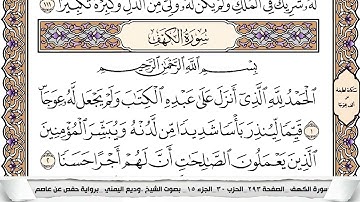 لَّهُۥ شَرِيكٌ فِى ٱلْمُلْكِ وَلَمْ يَكُن لَّهُۥ وَلِىٌّ مِّنَ ٱلذُّلِّ وَكَبِّرْهُ تَكْبِيرًۢا ١١١
سُورَةُ الكَهْفِ
بِسْمِ ٱللَّهِ ٱلرَّحْمَٰنِ ٱلرَّحِيمِ
ٱلْحَمْدُ لِلَّهِ ٱلَّذِىٓ أَنزَلَ عَلَىٰ عَبْدِهِ ٱلْكِتَٰبَ وَلَمْ يَجْعَل لَّهُۥ عِوَجَاۜ
١ قَيِّمًا لِّيُنذِرَ بَأْسًا شَدِيدًا مِّن لَّدُنْهُ وَيُبَشِّرَ ٱلْمُؤْمِنِينَ
ٱلَّذِينَ يَعْمَلُونَ ٱلصَّٰلِحَٰتِ أَنَّ لَهُمْ أَجْرًا حَسَنًا ٢
سورة الكهف الصفحة ٢٩٣ الحزب ٣٠ الجزء ١٥ بصوت الشيخ .وديع اليمني . برواية حفص عن عاصم